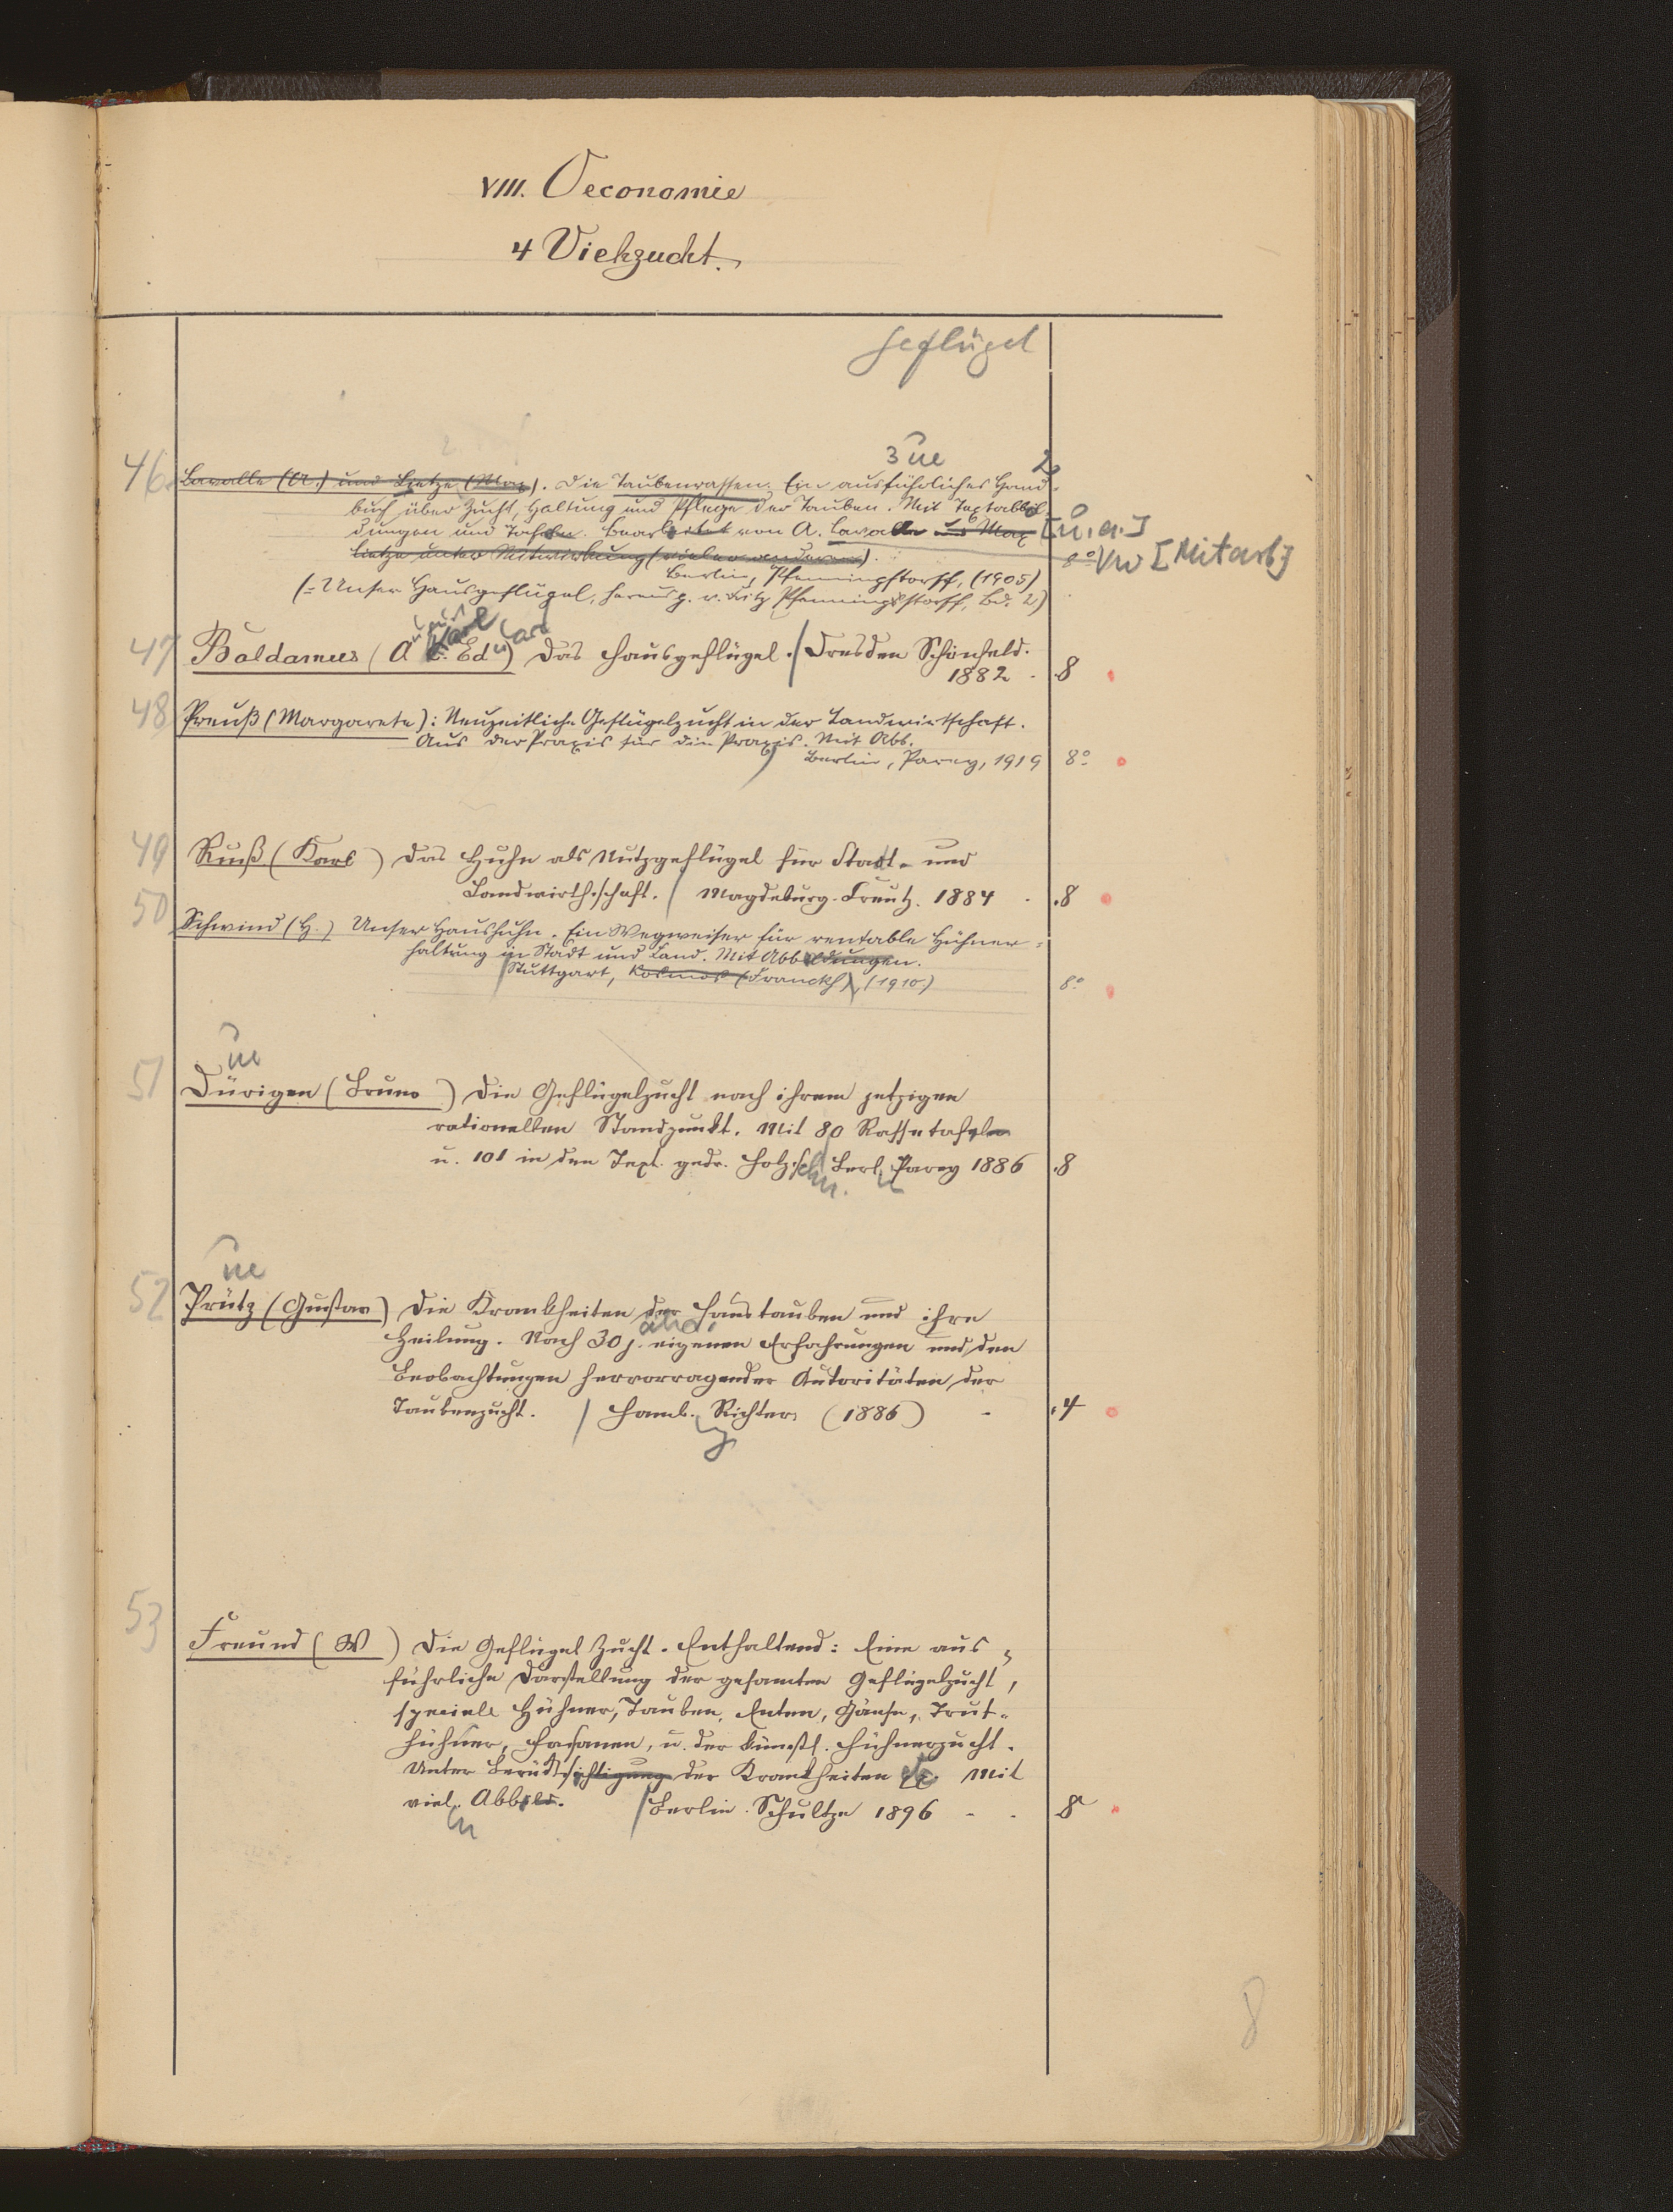 VIII. Oeconomie
4 Viehzucht.
Geflügel
3 ue 2
46 Lavalle (A.) und Lietze (Max). Die Taubenrassen. Ein ausführliches Hand-
buch über Zucht, Haltung und Pflege der Tauben. Mit Textabbil-
dungen und Tafeln. Bearbeitet von A. Lavalle und Max [u. a.]
Lietze unter Mitwirkung (vieler anderer). 8° VW [Mitarb]
Berlin, Pfenningstorff, (1905)
(= Unser Hausgeflügel, herausg. v. Fritz Pfenningstorff, Bd. 2)
Karl
47 Baldamus (A. C. Ed.) Das Hausgeflügel. / Dresden Schönfeld.
1882 . 8
48 Preuß (Margarete): Neuzeitliche Geflügelzucht in der Landwirtschaft.
Aus der Praxis für die Praxis. Mit Abb.
Berlin, Parey, 1919 8°
49 Ruß (Karl) Das Huhn als Nutzgeflügel für Stadt- und
Landwirthschaft. / Magdeburg. Creutz. 1884 . .8
50
Schwind (H.) Unser Haushuhn. Ein Wegweiser für rentable Hühner-
haltung in Stadt und Land. Mit Abbildungen.
Stuttgart, Kosmos (Franckh), (1910) 8°
ue
51 Dürigen (Bruno) Die Geflügelzucht nach ihrem jetzigen
rationellen Standpunkt. Mit 80 Rassetafeln
u. 101 in den Text gedr. Holzschn. Berl. Parey 1886 .8
ue
52 Prütz (Gustav) Die Krankheiten der Haustauben und ihre
Heilung. Nach 30 j. eigenen Erfahrungen und den
Beobachtungen hervorragender Autoritäten der
Taubenzucht. / Hamb. Richter (1886) - .4
53
Freund (W) Die Geflügel Zucht. Enthaltend: Eine aus-
führliche Darstellung der gesamten Geflügelzucht,
speciell Hühner, Tauben, Enten, Gänse, Trut-
hühner, Fasanen, u. der künstl. Hühnerzucht.
Unter Berücksichtigung der Krankheiten etc. Mit
viel. Abbild. / Berlin. Schultze 1896 - . 8
8